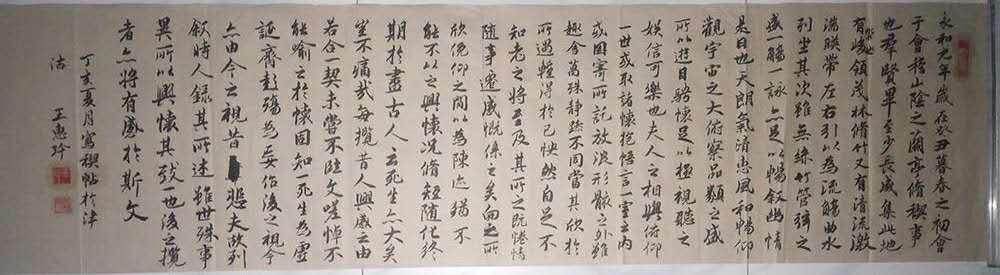 永和元年歲在癸丑暮春之初會
于會稽山陰之蘭亭脩稧事
也羣賢畢至少長咸集此地
有崇山峻領茂林脩竹又有清流激
湍暎帶左右引以為流觴曲水
列坐其次雖無絲竹管弦之
盛觴一詠亦足以暢叙幽情
是日也天朗氣清惠風和暢仰
觀宇宙之大俯察品類之盛
所以遊目騁懷足以極視聽之
娛信可樂也夫人之相與俯仰
一世或取諸懷抱悟言一室之內
或因寄所託放浪形骸之外雖
趣舍萬殊靜躁不同當其欣於
所遇暫得於己怏然自足不
知老之將至及其所之既惓情
隨事遷感慨係之矣向之所
欣俛仰之間以為陳迹猶不
能不以之興懷況脩短隨化終
期於盡古人云死生亦大矣
豈不痛哉每攬昔人興感之由
若合一契未嘗不臨文嗟悼不
能喻之於懷固知一死生為虛
誕齊彭殤為妄作後之視今
亦由今之視昔悲夫故列
叙時人錄其所述雖世殊事
異所以興懷其致一也後之攬
者亦將有感於斯文
丁亥夏月寫稧帖於津
沽 王